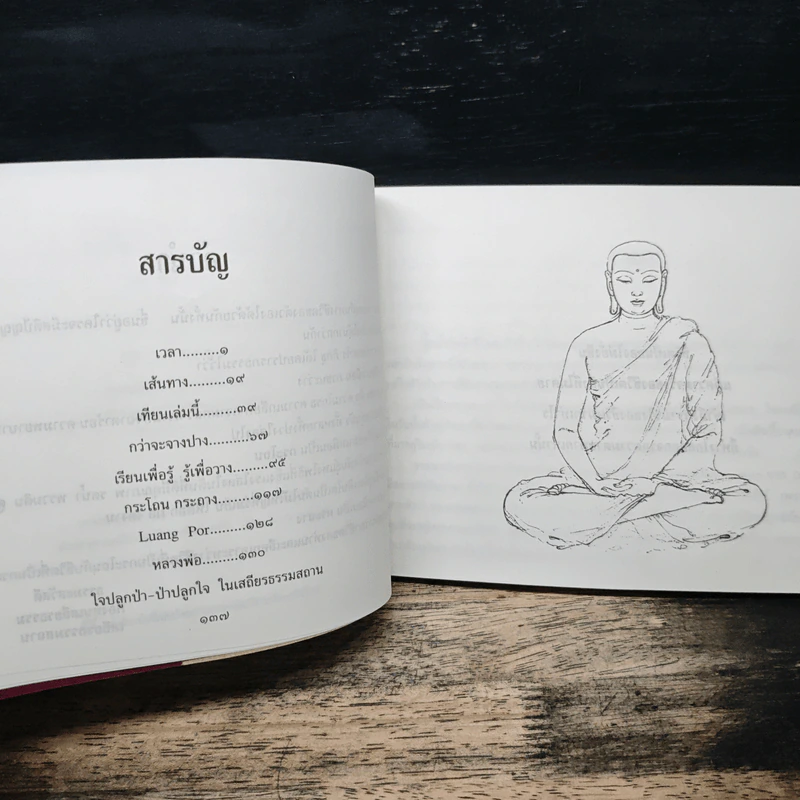 สารบัญ
เวลา.........๑
เส้นทาง.........๑๙
เทียนเล่มนี้.........๓๙
กว่าจะจางปาง..........๖๗
เรียนเพื่อรู้ รู้เพื่อวาง.........๙๕
กระโถน กระถาง.........๑๑๗
Luang Por.........๑๒๘
หลวงพ่อ.........๑๓๐
ใจปลูกป่า-ป่าปลูกใจ ในเสถียรธรรมสถาน
๑๓๗